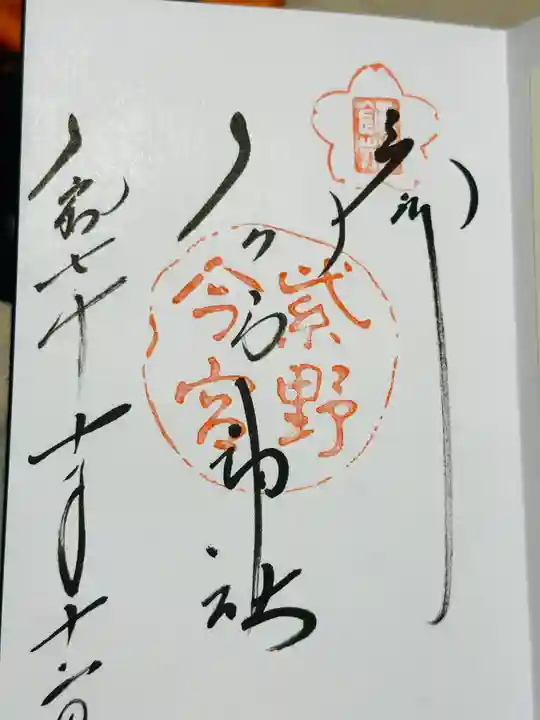 奉拝
紫野
今宮
今宮神社
令和七年十一月十六日